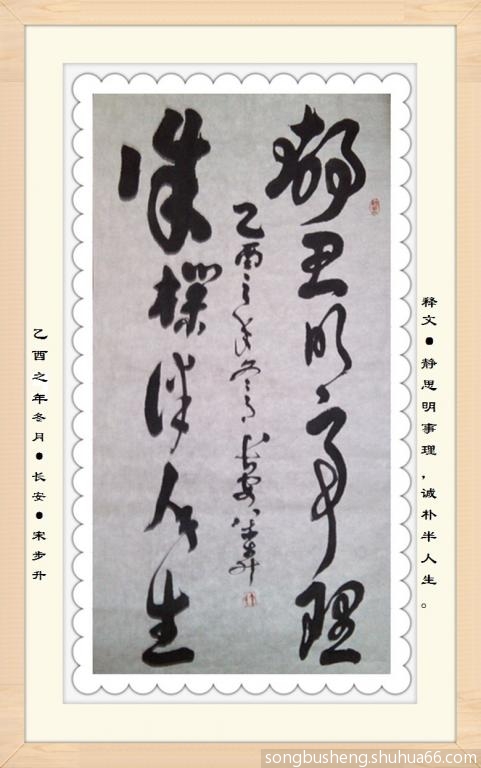 释文●静思明事理，诚朴半人生。
靜思明事理
乙酉之年冬月長安宋步升
誠樸伴人生
乙酉之年冬月●长安●宋步升
songbusheng.shuhua66.com